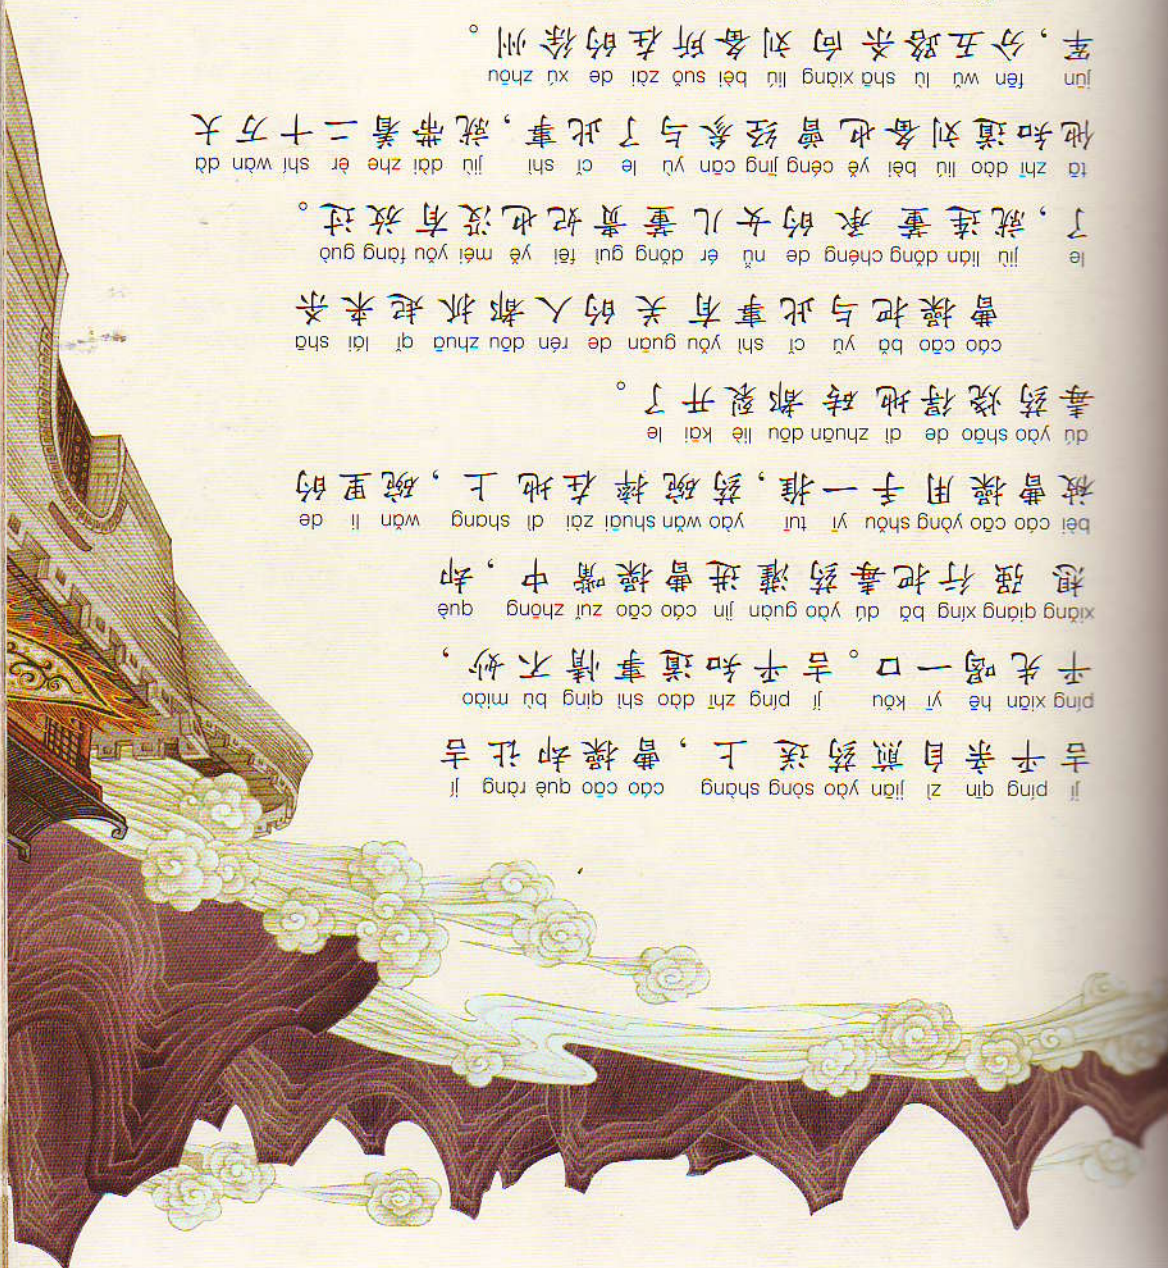 jí píng qīn zì jiān yào sòng shàng cáo cāo què ràng jí
吉平亲自煎药送上，曹操却让吉
píng xiān hē yī kǒu jí píng zhī dào shì qing bù miào
平先喝一口。吉平知道事情不妙，
xiǎng qiáng xíng bǎ dú yào guàn jìn cáo cāo zuǐ zhōng què
想强行把毒药灌进曹操嘴中，却
bèi cáo cāo yòng shǒu yī tuī yào wǎn shuāi zài dì shang wǎn lǐ de
被曹操用手一推，药碗摔在地上，碗里的
dú yào shāo de dì zhuān dōu liè kāi le
毒药烧得地砖都裂开了。
cáo cāo bǎ yǔ cǐ shì yǒu guān de rén dōu zhuā qǐ lái shā
曹操把与此事有关的人都抓起来杀
le jiù lián dǒng chéng de nǚ ér dǒng guì fēi yě méi yǒu fàng guò
了，就连董承的女儿董贵妃也没有放过。
tā zhī dào liú bèi yě céng jīng cān yù le cǐ shì jiù dài zhe èr shí wàn dà
他知道刘备也曾经参与了此事，就带着二十万大
jūn fēn wǔ lù shā xiàng liú bèi suǒ zài de xú zhōu
军，分五路杀向刘备所在的徐州。